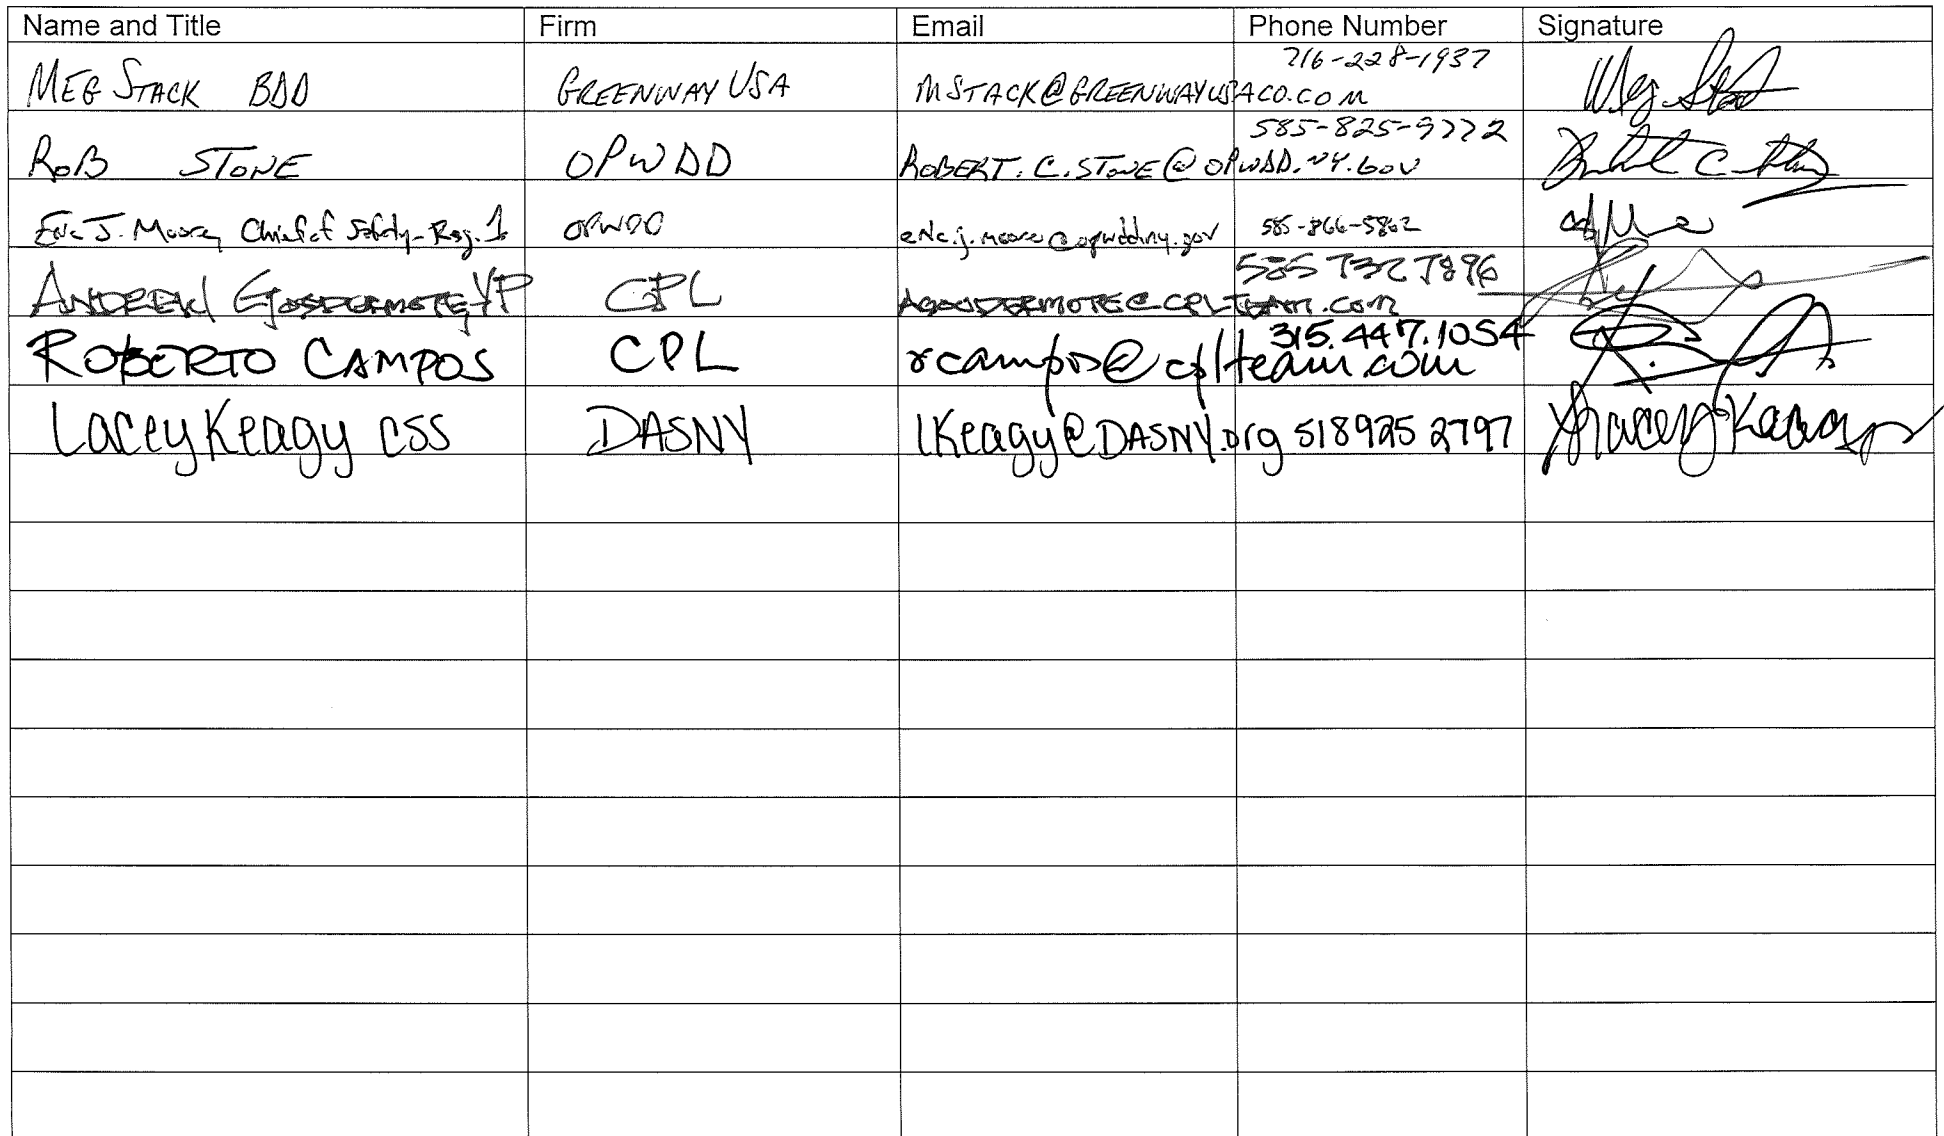 Name and Title Firm Email Phone Number Signature
MEG STACK BDD GREENWAY USA MSTACK@GREENWAYUSACO.COM 716-228-1937 Meg Stack
ROB STONE OPWDD ROBERT.C.STONE@OPWDD.NY.GOV 585-825-9772
Eric J. Moore, Chief of Safety-Reg. 1 OPWDD eric.j.moore@opwdd.ny.gov 585-866-5862
ANDREW GOODERMOTE, VP CPL AGOODERMOTE@CPLTEAM.COM 585 732 7896
ROBERTO CAMPOS CPL rcampos@cplteam.com 315.447.1054
Lacey Keagy CSS DASNY lKeagy@DASNY.org 518 925 2797 Lacey Keagy